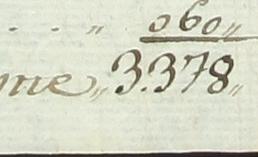 . . . „ 060„
me„ 3.378„